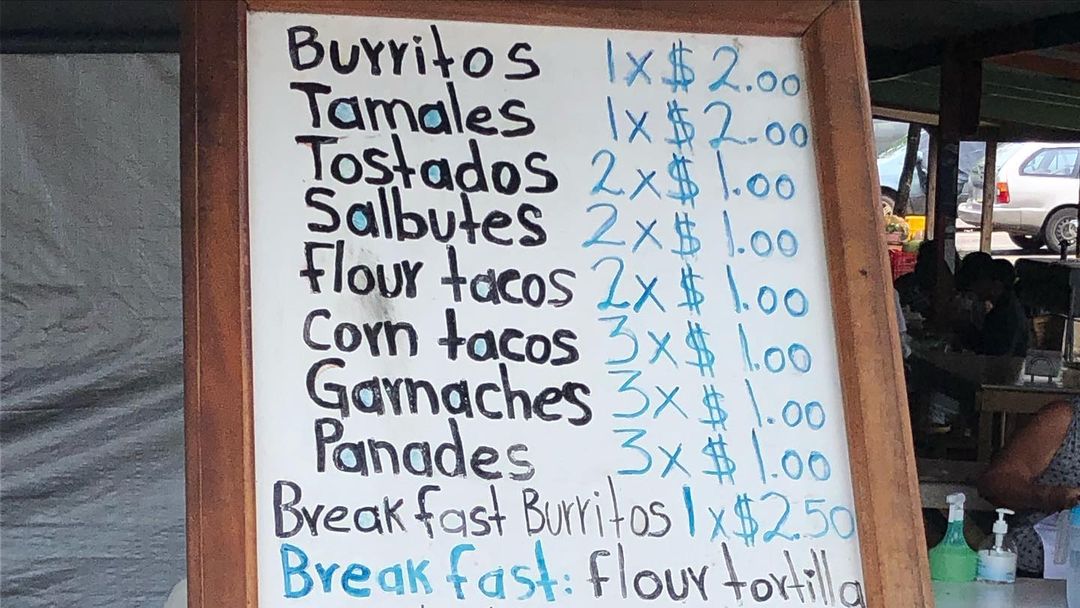 Burritos 1x $2.00
Tamales 1x $2.00
Tostados 2x $1.00
Salbutes 2x $1.00
Flour tacos 2x $1.00
Corn tacos 3x $1.00
Garnaches 3x $1.00
Panades 3x $1.00
Breakfast Burritos 1x $2.50
Breakfast: flour tortilla